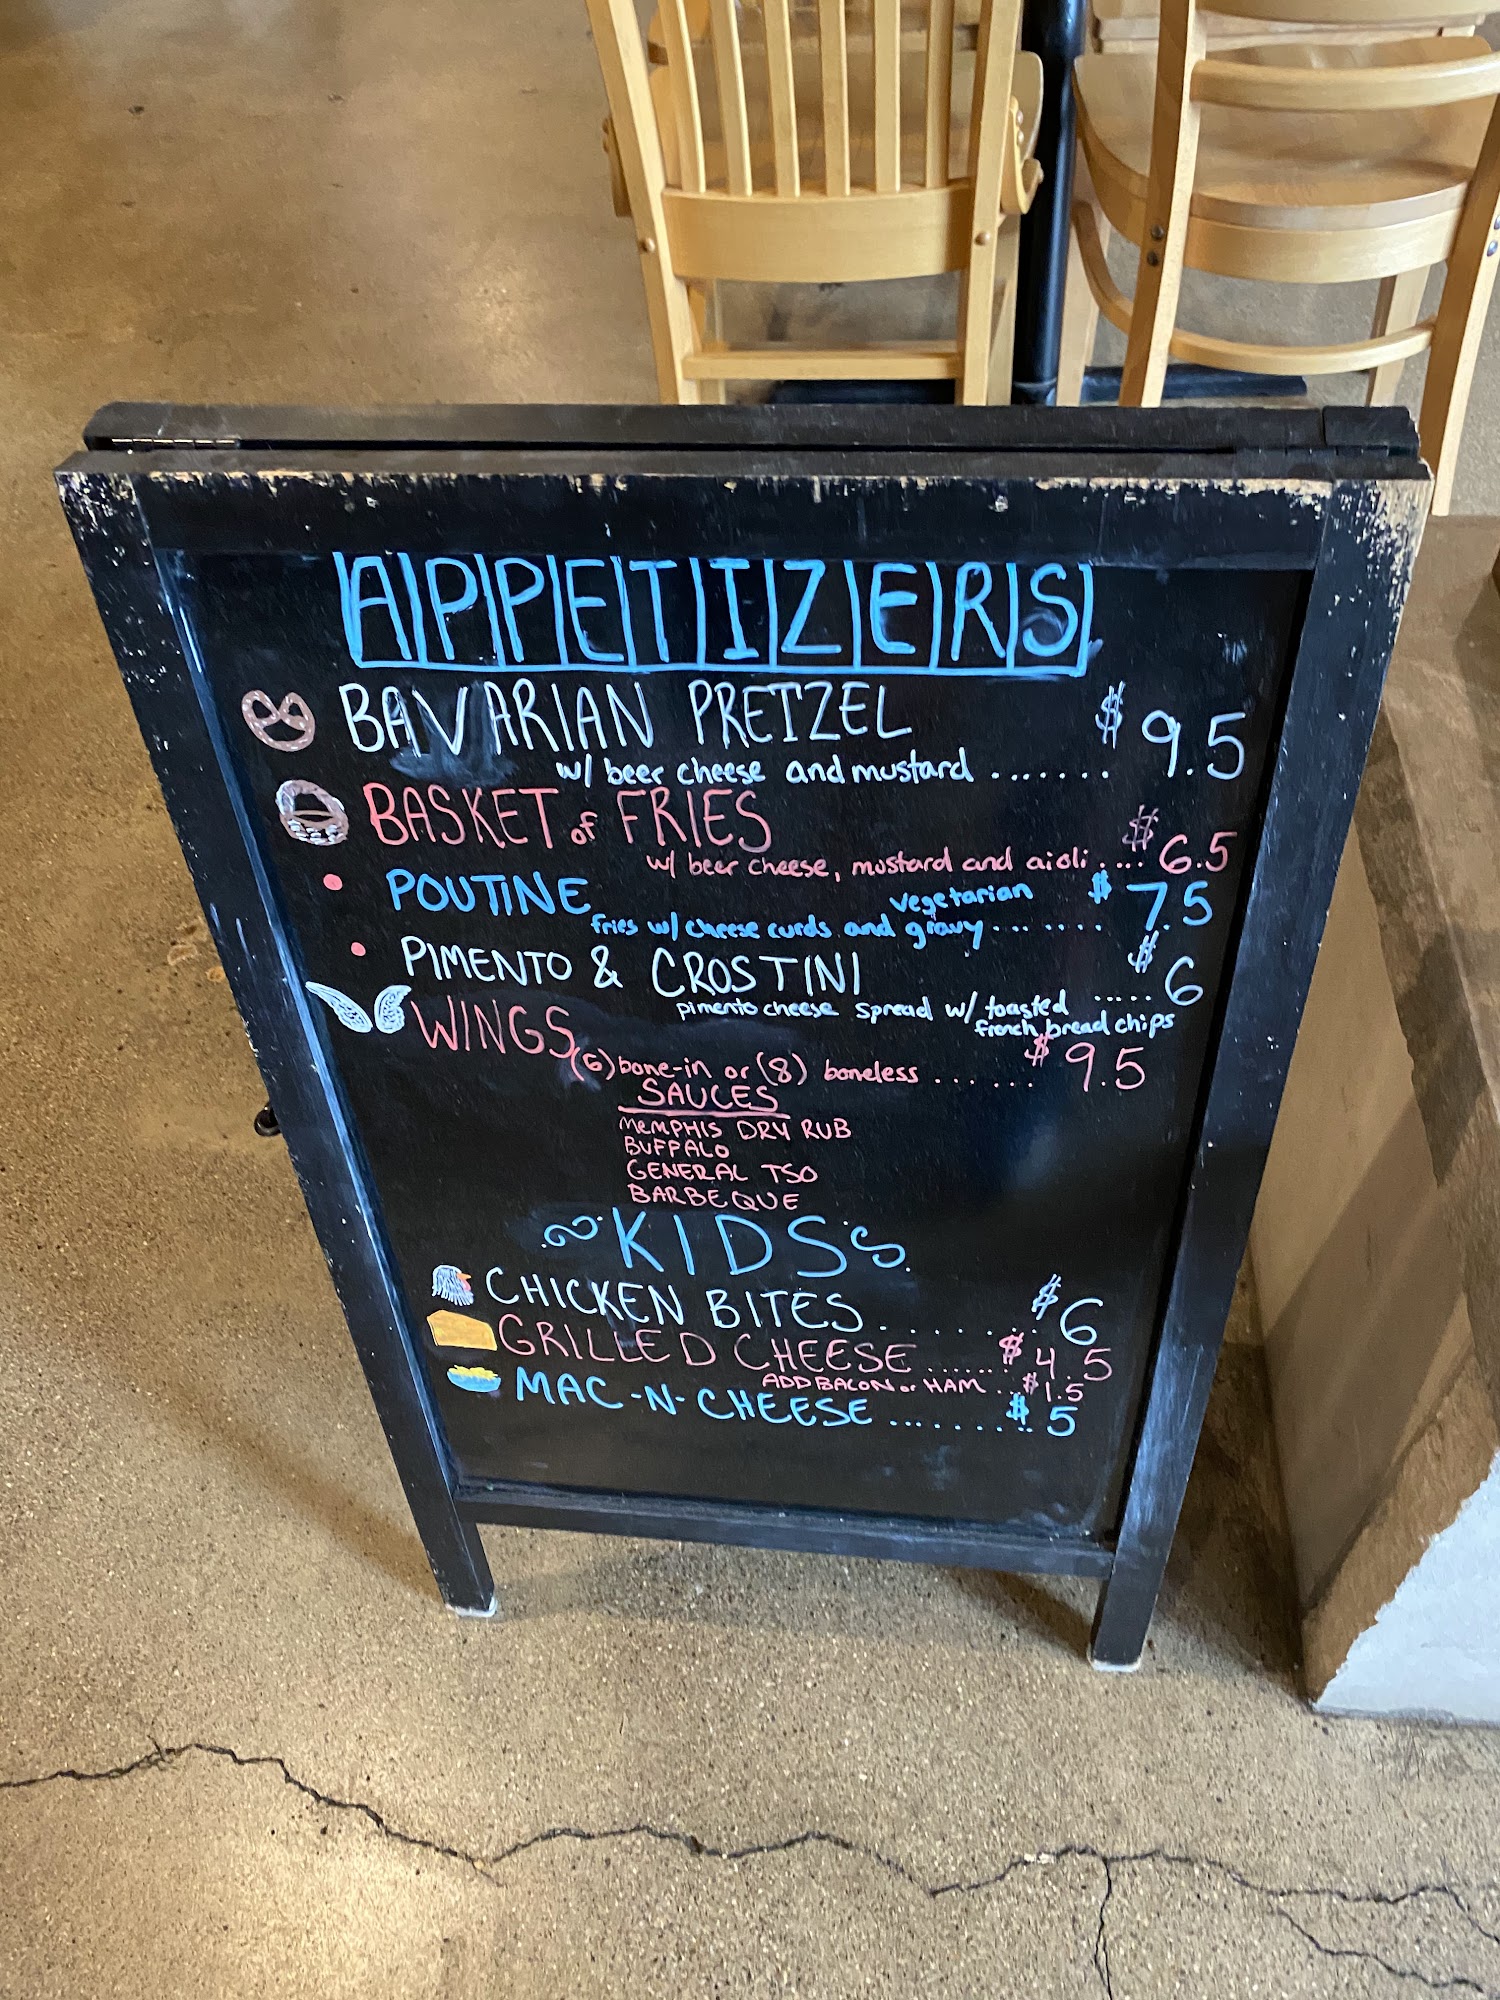 APPETIZERS
BAVARIAN PRETZEL $ 9.5
w/ beer cheese and mustard .......
BASKET of FRIES $
w/ beer cheese, mustard and aioli .... 6.5
POUTINE vegetarian $ 7.5
fries w/ cheese curds and gravy .......
PIMENTO & CROSTINI $ 6
pimento cheese spread w/ toasted .....
french bread chips
WINGS $ 9.5
(6) bone-in or (8) boneless ......
SAUCES
MEMPHIS DRY RUB
BUFFALO
GENERAL TSO
BARBEQUE
KIDS
CHICKEN BITES ....... $ 6
GRILLED CHEESE ....... $ 4.5
ADD BACON or HAM ... $ 1.5
MAC-N-CHEESE .......... $ 5